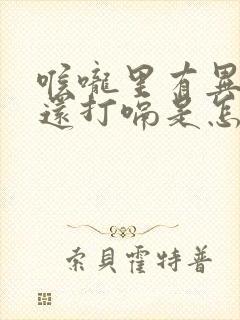 喉嚨里有異
還打嗝是怎
索貝霍特普